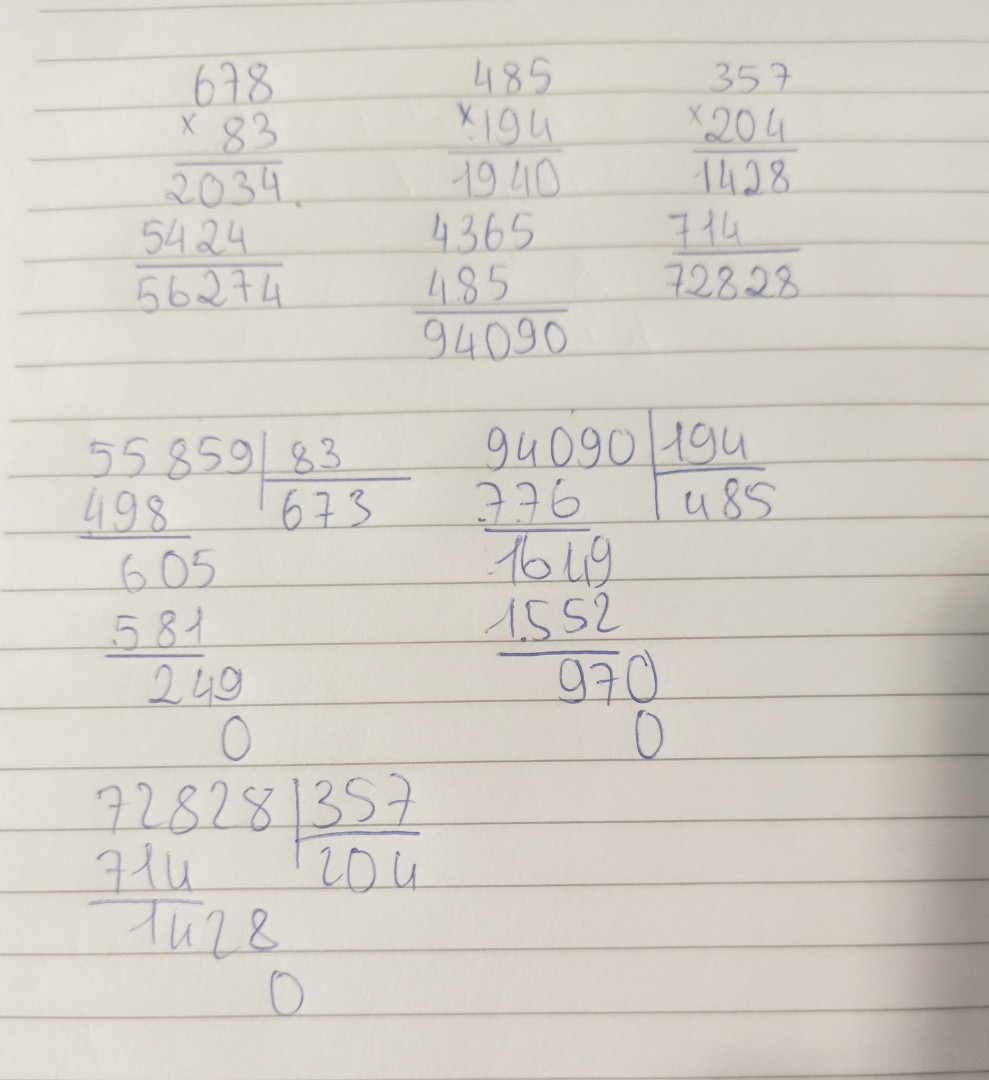 678 485 357
× 83 ×194 ×204
2034 1940 1428
5424 4365 714
56274 485 72828
94090
55859 83 94090 194
498 673 776 485
605 1649
581 1552
249 970
0 0
72828 357
714 204
1428
0